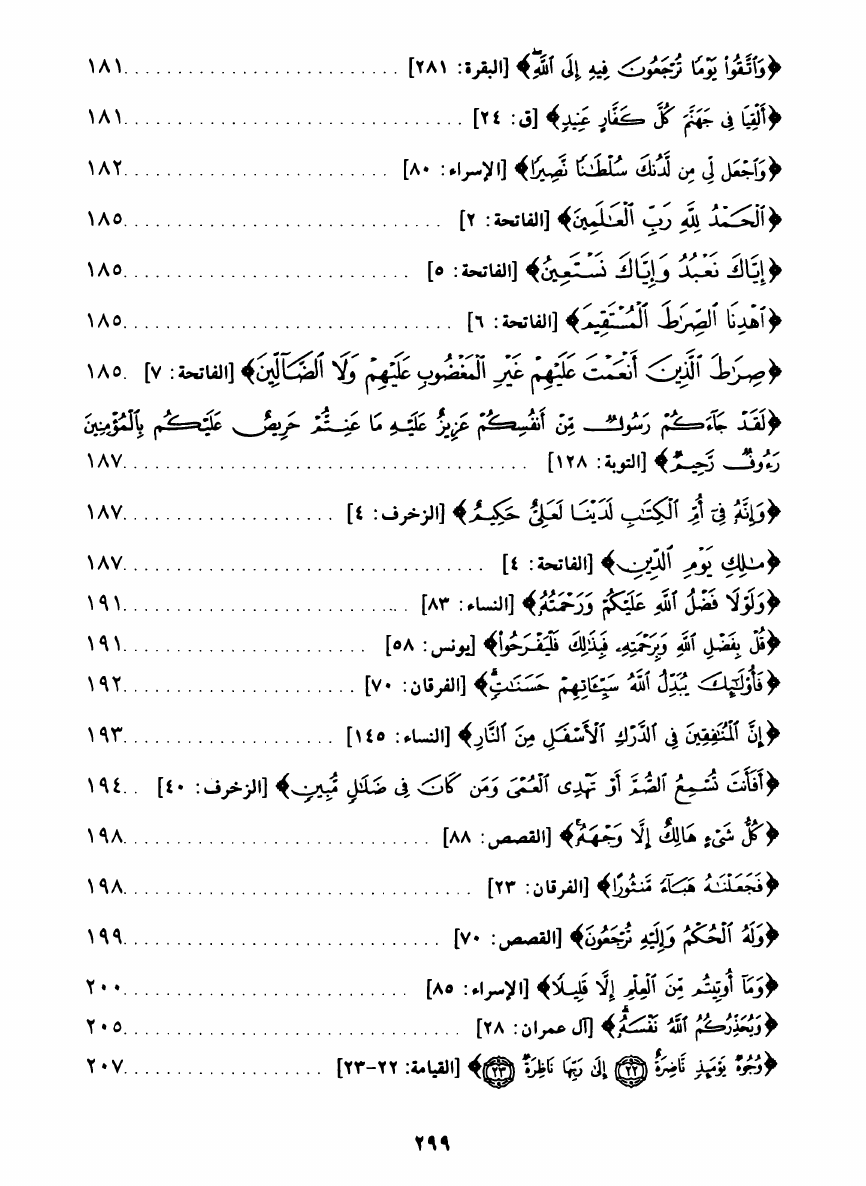 ﴿وَٱتَّقُوا۟ يَوْمًا تُرْجَعُونَ فِيهِ إِلَى ٱللَّهِ﴾ [البقرة: ٢٨١] ........................ ١٨١
﴿أَلْقِيَا فِى جَهَنَّمَ كُلَّ كَفَّارٍ عَنِيدٍ﴾ [ق: ٢٤] ........................ ١٨١
﴿وَٱجْعَل لِّى مِن لَّدُنكَ سُلْطَـٰنًا نَّصِيرًا﴾ [الإسراء: ٨٠] ........................ ١٨٢
﴿ٱلْحَمْدُ لِلَّهِ رَبِّ ٱلْعَـٰلَمِينَ﴾ [الفاتحة: ٢] ........................ ١٨٥
﴿إِيَّاكَ نَعْبُدُ وَإِيَّاكَ نَسْتَعِينُ﴾ [الفاتحة: ٥] ........................ ١٨٥
﴿ٱهْدِنَا ٱلصِّرَٰطَ ٱلْمُسْتَقِيمَ﴾ [الفاتحة: ٦] ........................ ١٨٥
﴿صِرَٰطَ ٱلَّذِينَ أَنْعَمْتَ عَلَيْهِمْ غَيْرِ ٱلْمَغْضُوبِ عَلَيْهِمْ وَلَا ٱلضَّآلِّينَ﴾ [الفاتحة: ٧] . ١٨٥
﴿لَقَدْ جَآءَكُمْ رَسُولٌ مِّنْ أَنفُسِكُمْ عَزِيزٌ عَلَيْهِ مَا عَنِتُّمْ حَرِيصٌ عَلَيْكُم بِٱلْمُؤْمِنِينَ
رَءُوفٌ رَّحِيمٌ﴾ [التوبة: ١٢٨] ........................ ١٨٧
﴿وَإِنَّهُۥ فِىٓ أُمِّ ٱلْكِتَـٰبِ لَدَيْنَا لَعَلِىٌّ حَكِيمٌ﴾ [الزخرف: ٤] ........................ ١٨٧
﴿مَـٰلِكِ يَوْمِ ٱلدِّينِ﴾ [الفاتحة: ٤] ........................ ١٨٧
﴿وَلَوْلَا فَضْلُ ٱللَّهِ عَلَيْكُمْ وَرَحْمَتُهُۥ﴾ [النساء: ٨٣] ........................ ١٩١
﴿قُلْ بِفَضْلِ ٱللَّهِ وَبِرَحْمَتِهِۦ فَبِذَٰلِكَ فَلْيَفْرَحُوا۟﴾ [يونس: ٥٨] ........................ ١٩١
﴿فَأُو۟لَـٰٓئِكَ يُبَدِّلُ ٱللَّهُ سَيِّـَٔاتِهِمْ حَسَنَـٰتٍ ۗ﴾ [الفرقان: ٧٠] ........................ ١٩٢
﴿إِنَّ ٱلْمُنَـٰفِقِينَ فِى ٱلدَّرْكِ ٱلْأَسْفَلِ مِنَ ٱلنَّارِ﴾ [النساء: ١٤٥] ........................ ١٩٣
﴿أَفَأَنتَ تُسْمِعُ ٱلصُّمَّ أَوْ تَهْدِى ٱلْعُمْىَ وَمَن كَانَ فِى ضَلَـٰلٍ مُّبِينٍ﴾ [الزخرف: ٤٠] .. ١٩٤
﴿كُلُّ شَىْءٍ هَالِكٌ إِلَّا وَجْهَهُۥ ۚ﴾ [القصص: ٨٨] ........................ ١٩٨
﴿فَجَعَلْنَـٰهُ هَبَآءً مَّنثُورًا﴾ [الفرقان: ٢٣] ........................ ١٩٨
﴿وَلَهُ ٱلْحُكْمُ وَإِلَيْهِ تُرْجَعُونَ﴾ [القصص: ٧٠] ........................ ١٩٩
﴿وَمَآ أُوتِيتُم مِّنَ ٱلْعِلْمِ إِلَّا قَلِيلًا﴾ [الإسراء: ٨٥] ........................ ٢٠٠
﴿وَيُحَذِّرُكُمُ ٱللَّهُ نَفْسَهُۥ ۗ﴾ [آل عمران: ٢٨] ........................ ٢٠٥
﴿وُجُوهٌ يَوْمَئِذٍ نَّاضِرَةٌ ٢٢ إِلَىٰ رَبِّهَا نَاظِرَةٌ ٢٣﴾ [القيامة: ٢٢-٢٣] ........................ ٢٠٧
٢٩٩